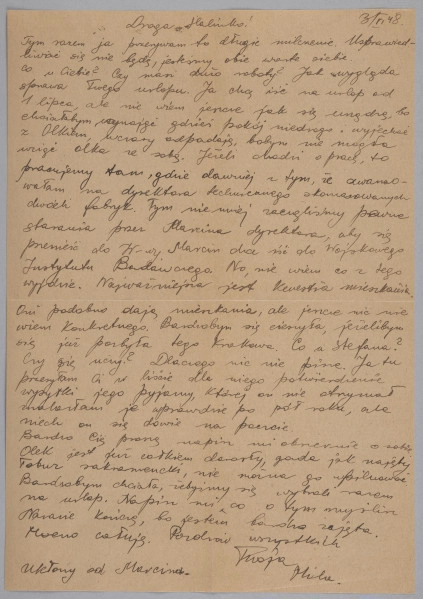 3/VI 48.
Droga Halinko!
Tym razem ja przerywam to długie milczenie. Usprawied-
liwiać się nie będę, jesteśmy obie warte siebie
Co u Ciebie? Czy masz dużo roboty? Jak wygląda
sprawa Twego urlopu. Ja chcę iść na urlop od
1 lipca, ale nie wiem jeszcze jak się urządzę, bo
chciałabym wynająć gdzieś pokój niedrogo i wyjechać
z Olkiem, wczasy odpadają, bobym nie mogła
wziąć Olka ze sobą. Jeżeli chodzi o pracę, to
pracujemy tam, gdzie dawniej z tym, że awanso-
wałam na dyrektora technicznego skomasowanych
dwóch fabryk. Tym nie mniej zaczęliśmy
starania przez Marcina dyrektora, aby się
przenieść do W-wy Marcin do Wojskowego
Instytutu Badawczego No, nie wiem co z tego
wyjdzie. Najważniejsza jest kwestia mieszkania.
Oni podobno dają mieszkania, ale jeszcze nic nie
wiem konkretnego. Bardzobym się cieszyła, jeżelibym
się już pozbyła tego Krakowa. Co u Stefana?
Czy się uczy? Dlaczego nic nie pisze. Ja tu
przesyłam Ci w liście dla niego potwierdzenie
wysyłki jego pyjamy, której on nie otrzymał
znalazłam je wprawdzie po pół roku, ale
niech on się dowie na poczcie.
Bardzo Cię proszę napisz mi obszernie o sobie
Olek jest już całkiem dorosły, gada jak najęty
Łobuz sakramencki, nie można go upilnować
Bardzobym chciała, żebyśmy się wybrali razem
na urlop. Napisz mi co o tym myślisz
Narazie kończę, bo jestem bardzo zajęta.
Mocno całuję. Pozdrów wszystkich
Twoja
Ukłony od Marcina.